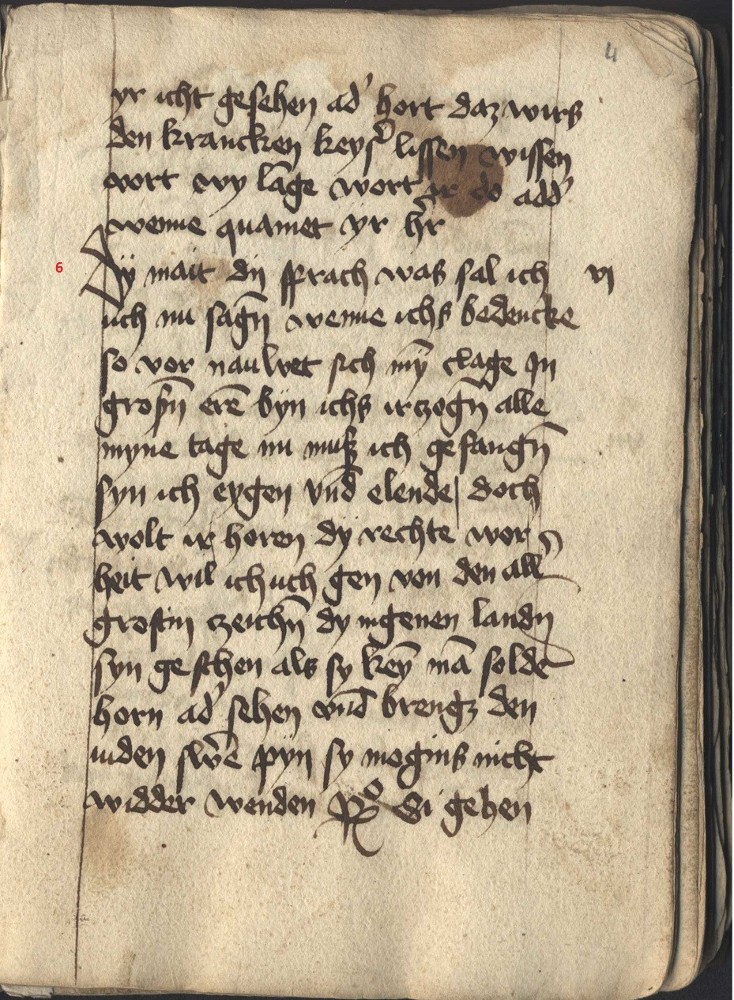 4
yr icht gesehen ad' hort daz wirs
den krancken keys' lissen wissen
vort wy lāge wort ir do add'
wenne quamet yr hr̄
6 Dy mait dy sprach was sal ich vi
uch nu sagn̄ wenne ichs bedencke
so vor nauwet sich my̅ clage In
grosn̄ erē byn ichs irczogn̄ alle
myne tage nu muß ich gefangn̄
syn ich eygen vnd̄ elende doch
wolt ir horen dy rechte wor
heit wil ich uch gen von den all'
grostin czeichn̄ dy ingenen landn̄
syn geschen als sy key̅ mā solde
horn ad' sehen vnd̄ brengz den
iuden swē pyn sy mogins nicht
widder wenden di gehen